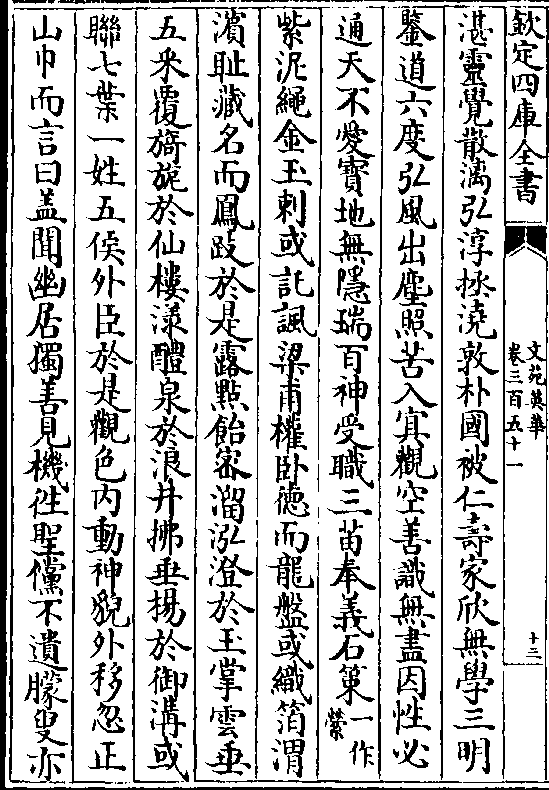 欽定四庫全書
文苑英華
卷三百五十一
十三
湛靈覺散漓弘淳拯澆敦朴國被仁壽家欣無學三明
鑒道六度弘風出塵照苦入寘觀空善識無盡因性必
通天不愛寶地無隱瑞百神受職三苗奉義石第一作縈
紫泥繩金玉刺或託諷梁甫權卧德而龍盤或織箔渭
濱耻藏名而鳳跂於是露點飴密溜泓澄於玉掌雲垂
五采覆旖旎於仙樓漾醴泉於浪井拂垂楊於御溝或
聯七葉一姓五侯外臣於是觀色内動神貌外移忽正
山巾而言曰盖聞幽居獨善見機徃聖儻不遺朦叟亦